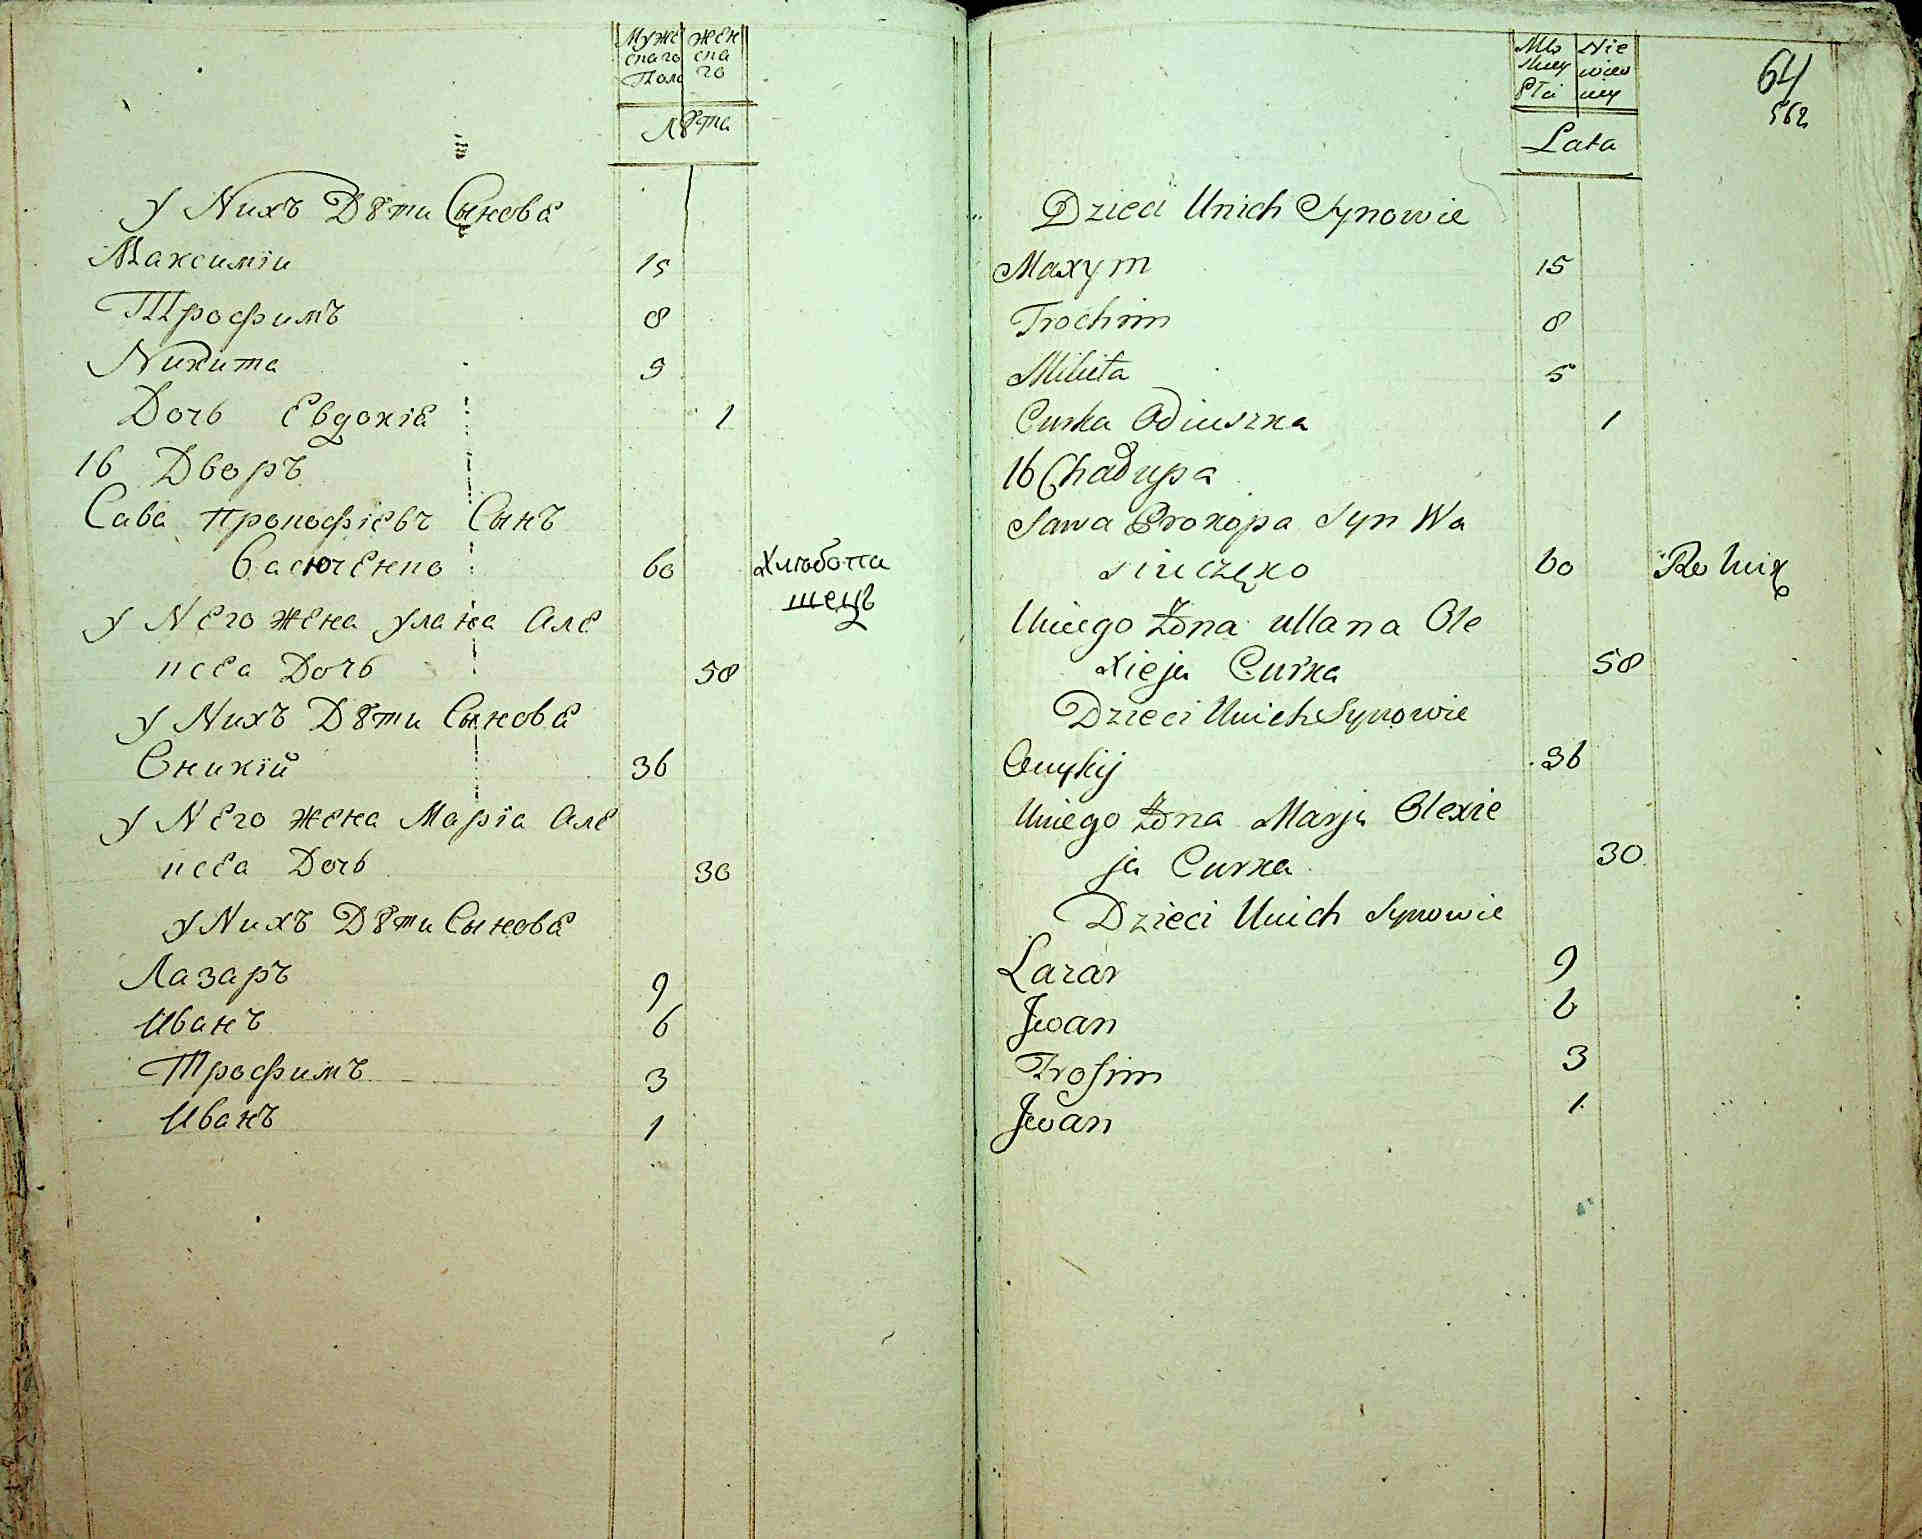 Муже
скаго
Полa
жен
ска
го
Лѣта
у Нихъ Дѣти Сыновѣ
Максимiи 15
Трофимъ 8
Никита 5
Дочь Евдокiѣ 1
16 Дворъ
Сава Прокофiевъ Сынъ
Васюченко 60 Хлѣбопа
шецъ
у Него жена Улана Але
ксѣа Дочь 58
у Нихъ Дѣти Сыновѣ
Оникiй 36
у Него жена Марiа Але
ксѣа Дочь 30
у Нихъ Дѣти Сыновѣ
Лазаръ 9
Иванъ 6
Трофимъ 3
Иванъ 1
64
562
Lata
Dzieci Unich Synowie
Maxym 15
Trochim 8
Mikita 5
Curka Odiuszka 1
16 Chałupa
Sawa Prokopa Syn Wa
siuczęko 60 Rolnik
Uniego Żona Ullana Ole
xieja Curka 58
Dzieci Unich Synowie
Onykij 36
Uniego Żona Marja Olexie
ja Curka 30
Dzieci Unich Synowie
Lazar 9
Jwan 6
Trofim 3
Jwan 1